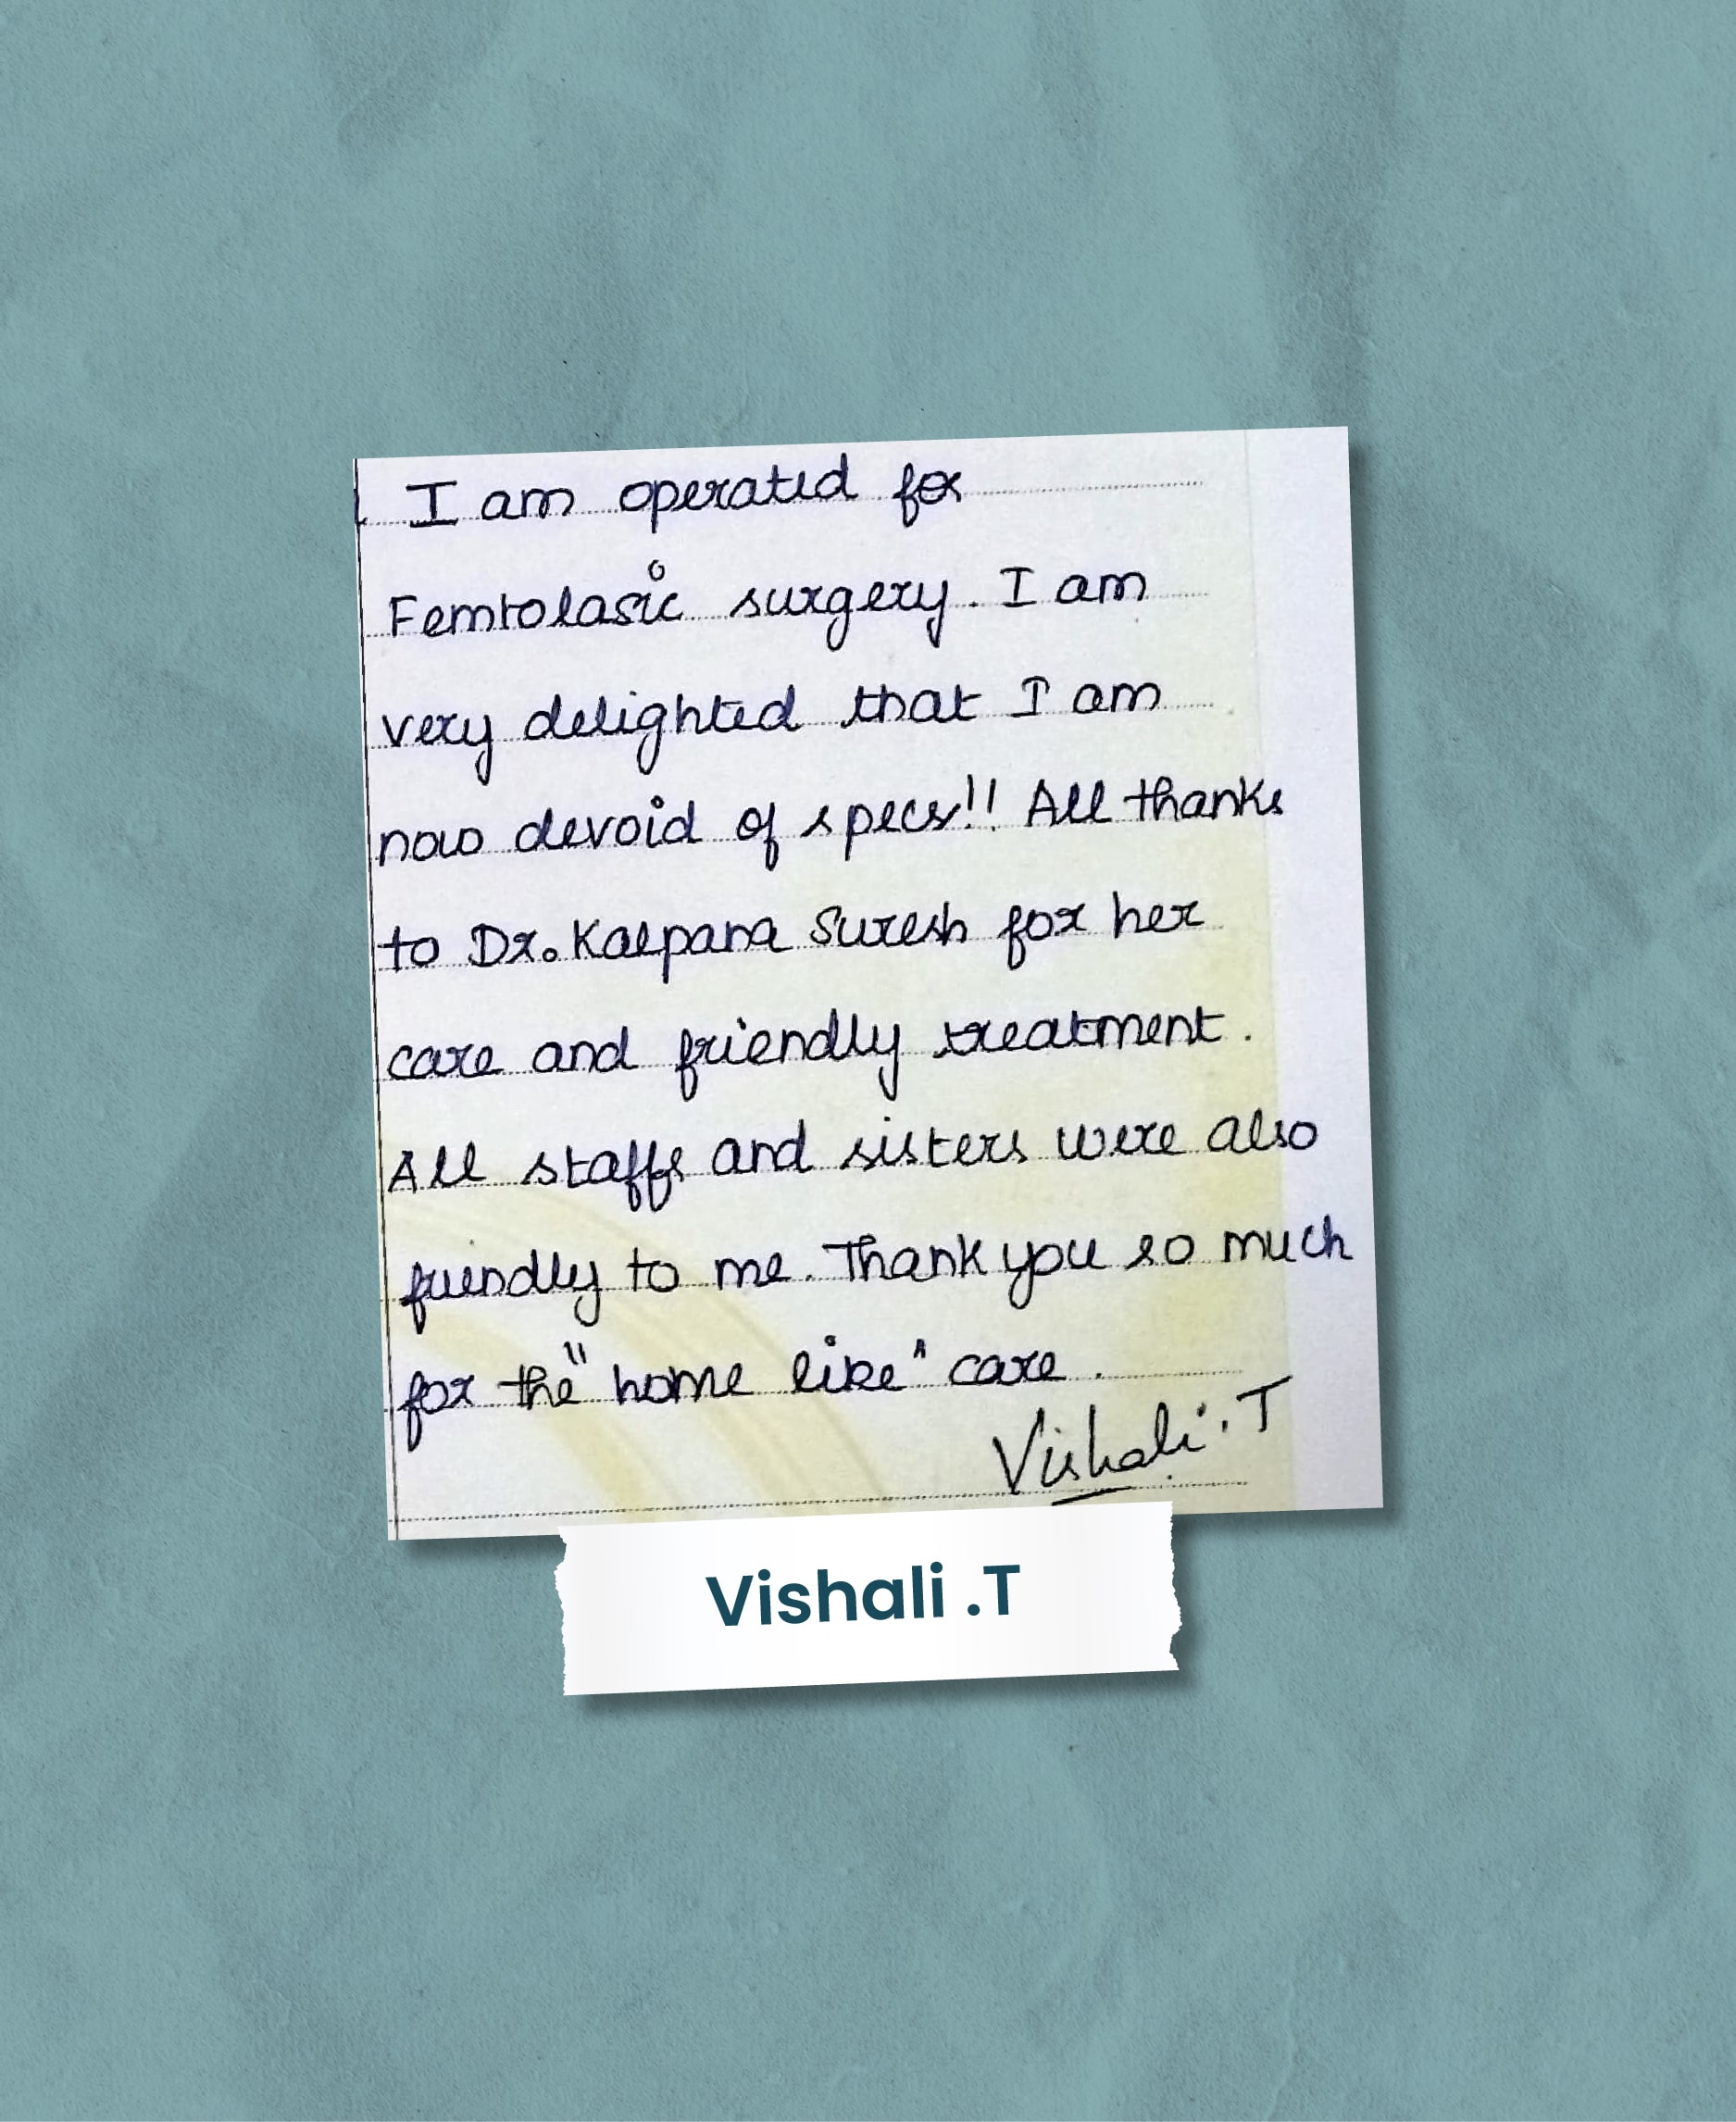 I am operated for
Femtolasic surgery. I am
very delighted that I am
now devoid of specs!! All thanks
to Dr. Kalpana Suresh for her
care and friendly treatment.
All staffs and sisters were also
friendly to me. Thank you so much
for the "home like" care.
Vishali.T
Vishali .T